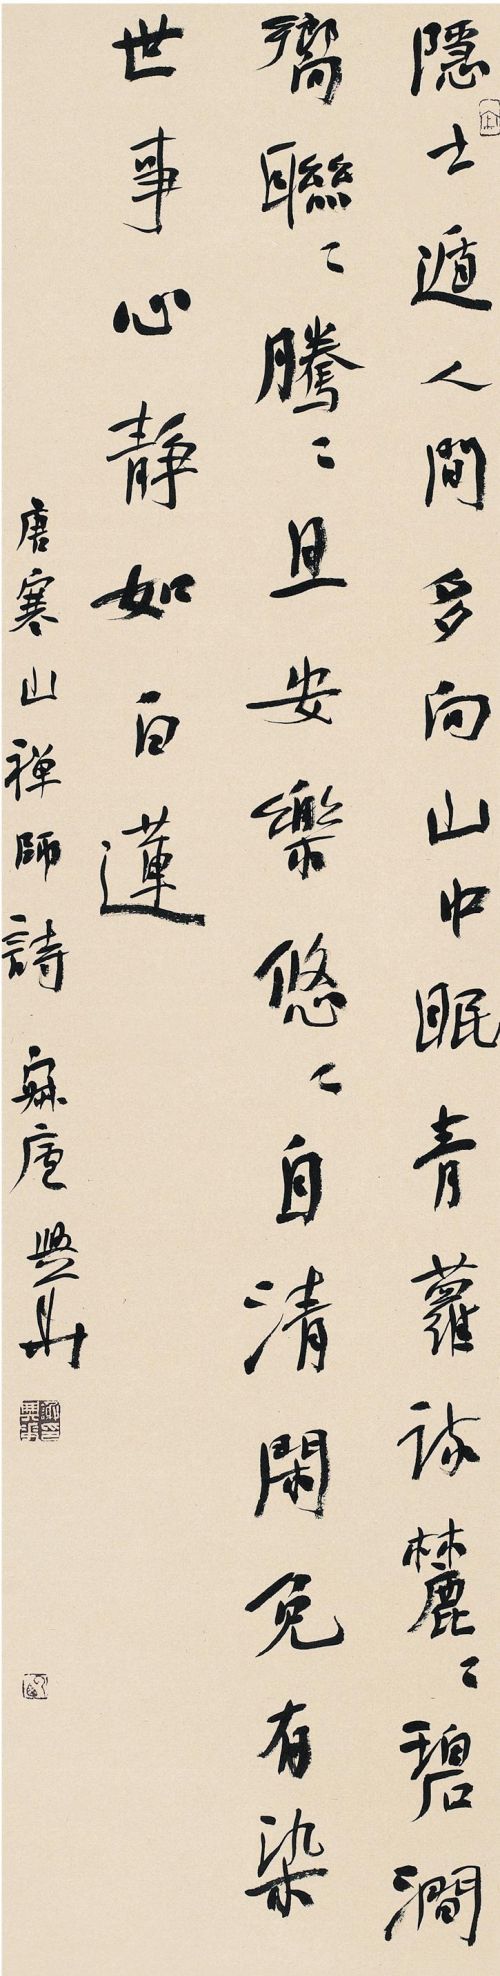 隱士遁人間多向山中眠青蘿疎麓〻碧澗
響聯〻騰〻且安樂悠〻自清閑免有染
世事心靜如白蓮
唐寒山禅師詩 寐庵興華